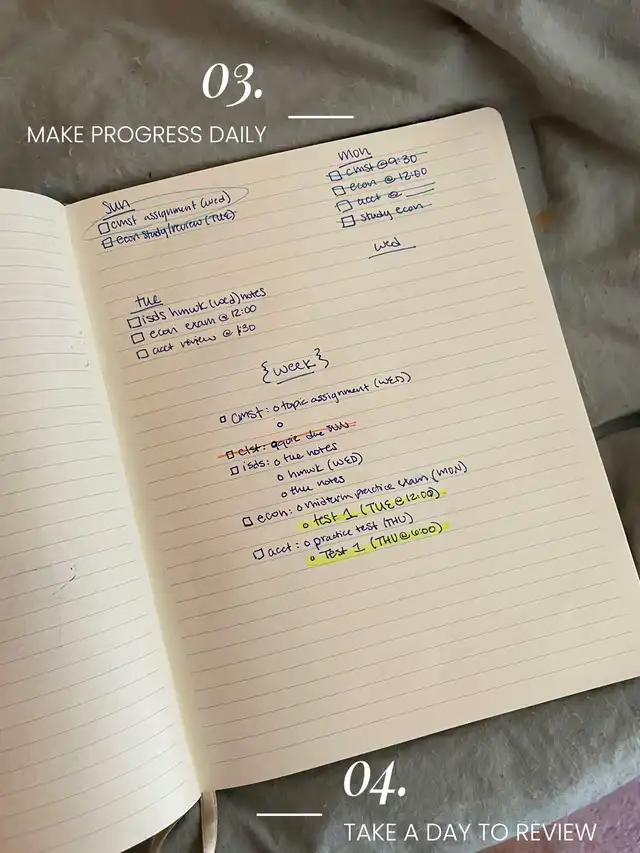 03.
MAKE PROGRESS DAILY
sun
cmst assignment (wed)
econ study/review (TUE)
mon
cmst @ 9:30
econ @ 12:00
acct @
study econ
wed
tue
isds hmwk (wed) notes
econ exam @ 12:00
acct review @ 1:30
{week}
cmst: o topic assignment (WED)
o
clst: quiz due sun
isds: o tue notes
o hmwk (WED)
o thu notes
econ: o midterm practice exam (MON)
o test 1 (TUE @ 12:00)
acct: o practice test (THU)
o Test 1 (THU @ 6:00)
04.
TAKE A DAY TO REVIEW